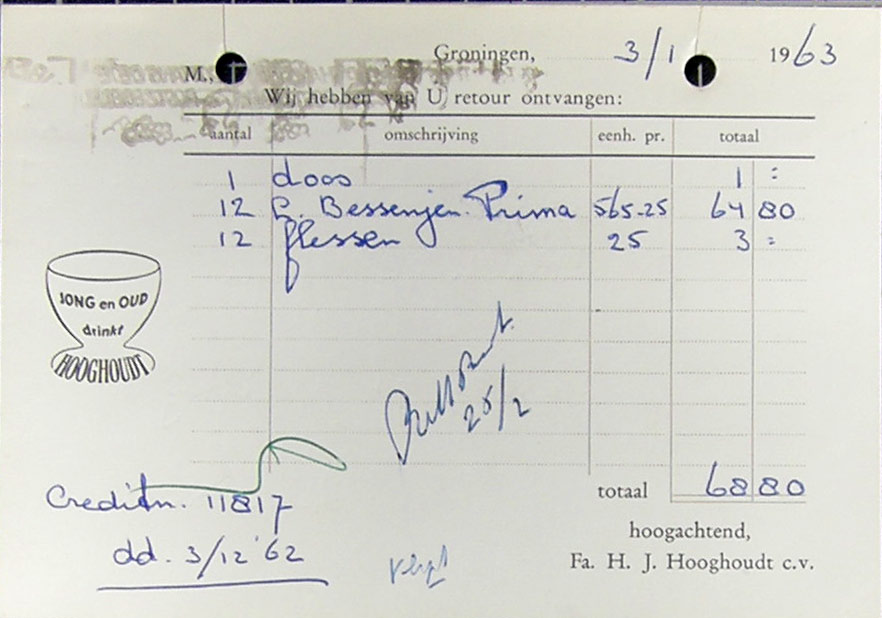 Groningen, 3/1 1963
M.,
Wij hebben van U retour ontvangen:
aantal omschrijving eenh. pr. totaal
1 doos 1 :
12 Bessenjen. Prima 565-25 64 80
12 flessen 25 3 :
JONG en OUD
drinkt
HOOGHOUDT
25/2
totaal 68 80
Creditn. 11817
dd. 3/12 '62
hoogachtend,
Fa. H. J. Hooghoudt c.v.